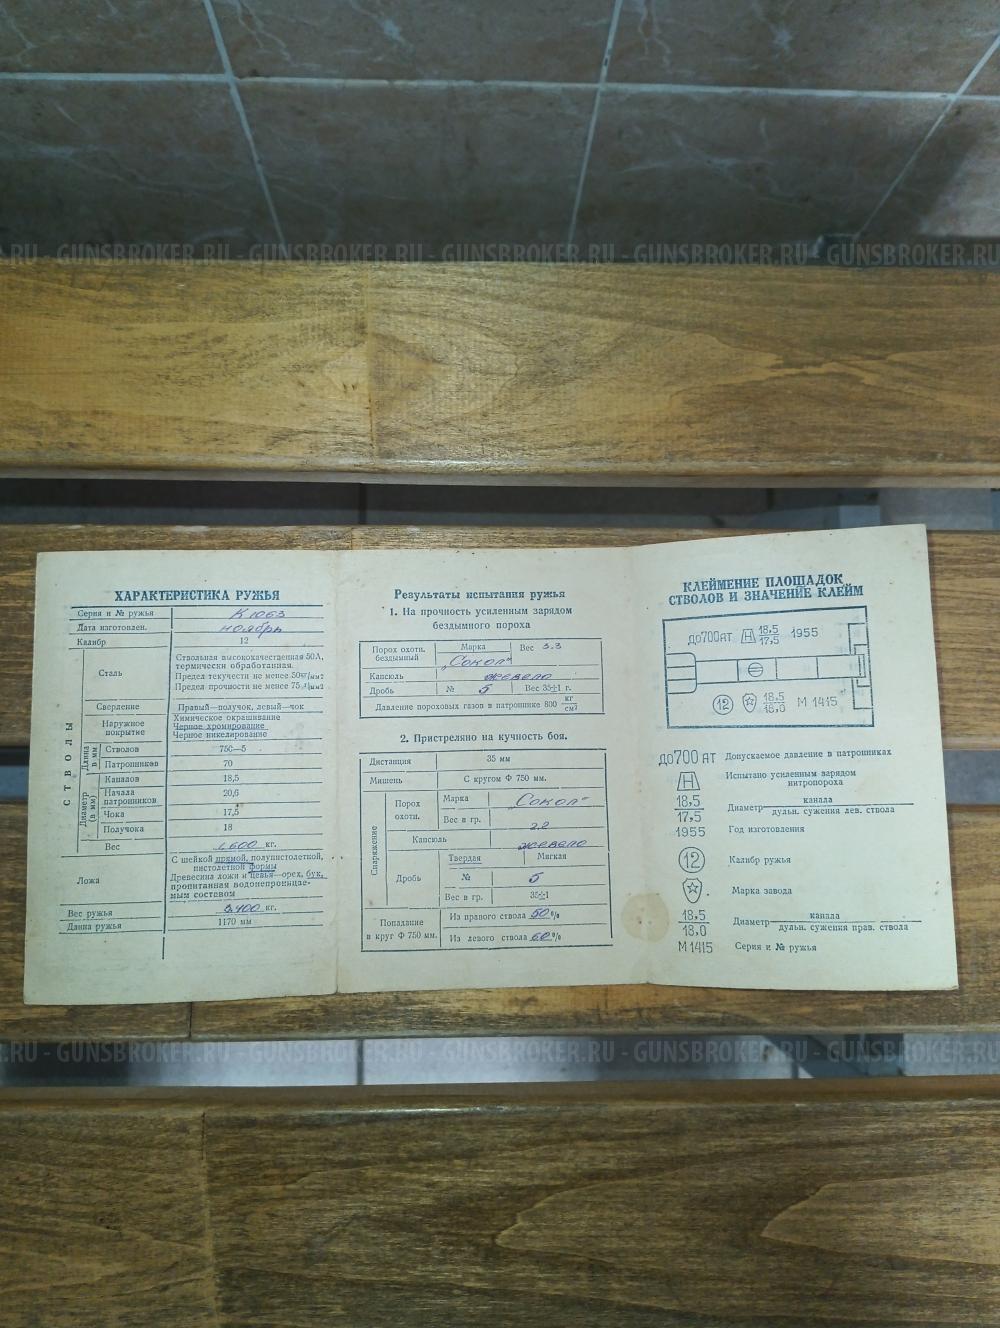 .RU - GUNSBROKER.RU - GUNSBROKER.RU - GUNSBROKER.RU - GUNSBROKER.RU - GUNSBROKER.RU
ХАРАКТЕРИСТИКА РУЖЬЯ
Серия и № ружья К1063
Дата изготовлен. ноябрь
Калибр 12
СТВОЛЫ
Сталь
Ствольная высококачественная 50А,
термически обработанная.
Предел текучести не менее 50кг/мм2
Предел прочности не менее 75кг/мм2
Сверление Правый—получок, левый—чок
Наружное покрытие
Химическое окрашивание
Черное хромирование
Черное никелирование
Длина в мм
Стволов 750—5
Патронников 70
Диаметр (в мм)
Каналов 18,5
Начала патронников 20,6
Чока 17,5
Получока 18
Вес 1,600 кг.
Ложа
С шейкой прямой, полупистолетной,
пистолетной формы
Древесина ложи и цевья—орех, бук,
пропитанная водонепроницае-
мым составом
Вес ружья 3.400 кг.
Длина ружья 1170 мм
Результаты испытания ружья
1. На прочность усиленным зарядом
бездымного пороха
Порох охотн. бездымный Марка „Сокол" Вес 3.3
Капсюль жевело
Дробь № 5 Вес 35±1 г.
Давление пороховых газов в патроннике 800 кг/см2
2. Пристреляно на кучность боя.
Дистанция 35 мм
Мишень С кругом Ф 750 мм.
Снаряжение
Порох охотн. Марка Сокол"
Вес в гр. 2.2
Капсюль жевело
Дробь Твердая Мягкая
№ 5
Вес в гр. 35±1
Попадание в круг Ф 750 мм.
Из правого ствола 50%
Из левого ствола 60%
КЛЕЙМЕНИЕ ПЛОЩАДОК
СТВОЛОВ И ЗНАЧЕНИЕ КЛЕЙМ
до700 АТ Н 18,5/17,5 1955
12 18,5/18,0 М 1415
до700 АТ Допускаемое давление в патронниках
Н Испытано усиленным зарядом
нитропороха
18,5/17,5 Диаметр канала/дульн. сужения лев. ствола
1955 Год изготовления
12 Калибр ружья
Марка завода
18,5/18,0 Диаметр канала/дульн. сужения прав. ствола
М 1415 Серия и № ружья
.RU - GUNSBROKER.RU - GUNSBROKER.RU - GUNSBROKER.RU - GUNSBROKER.RU - GUNSBROKER.RU